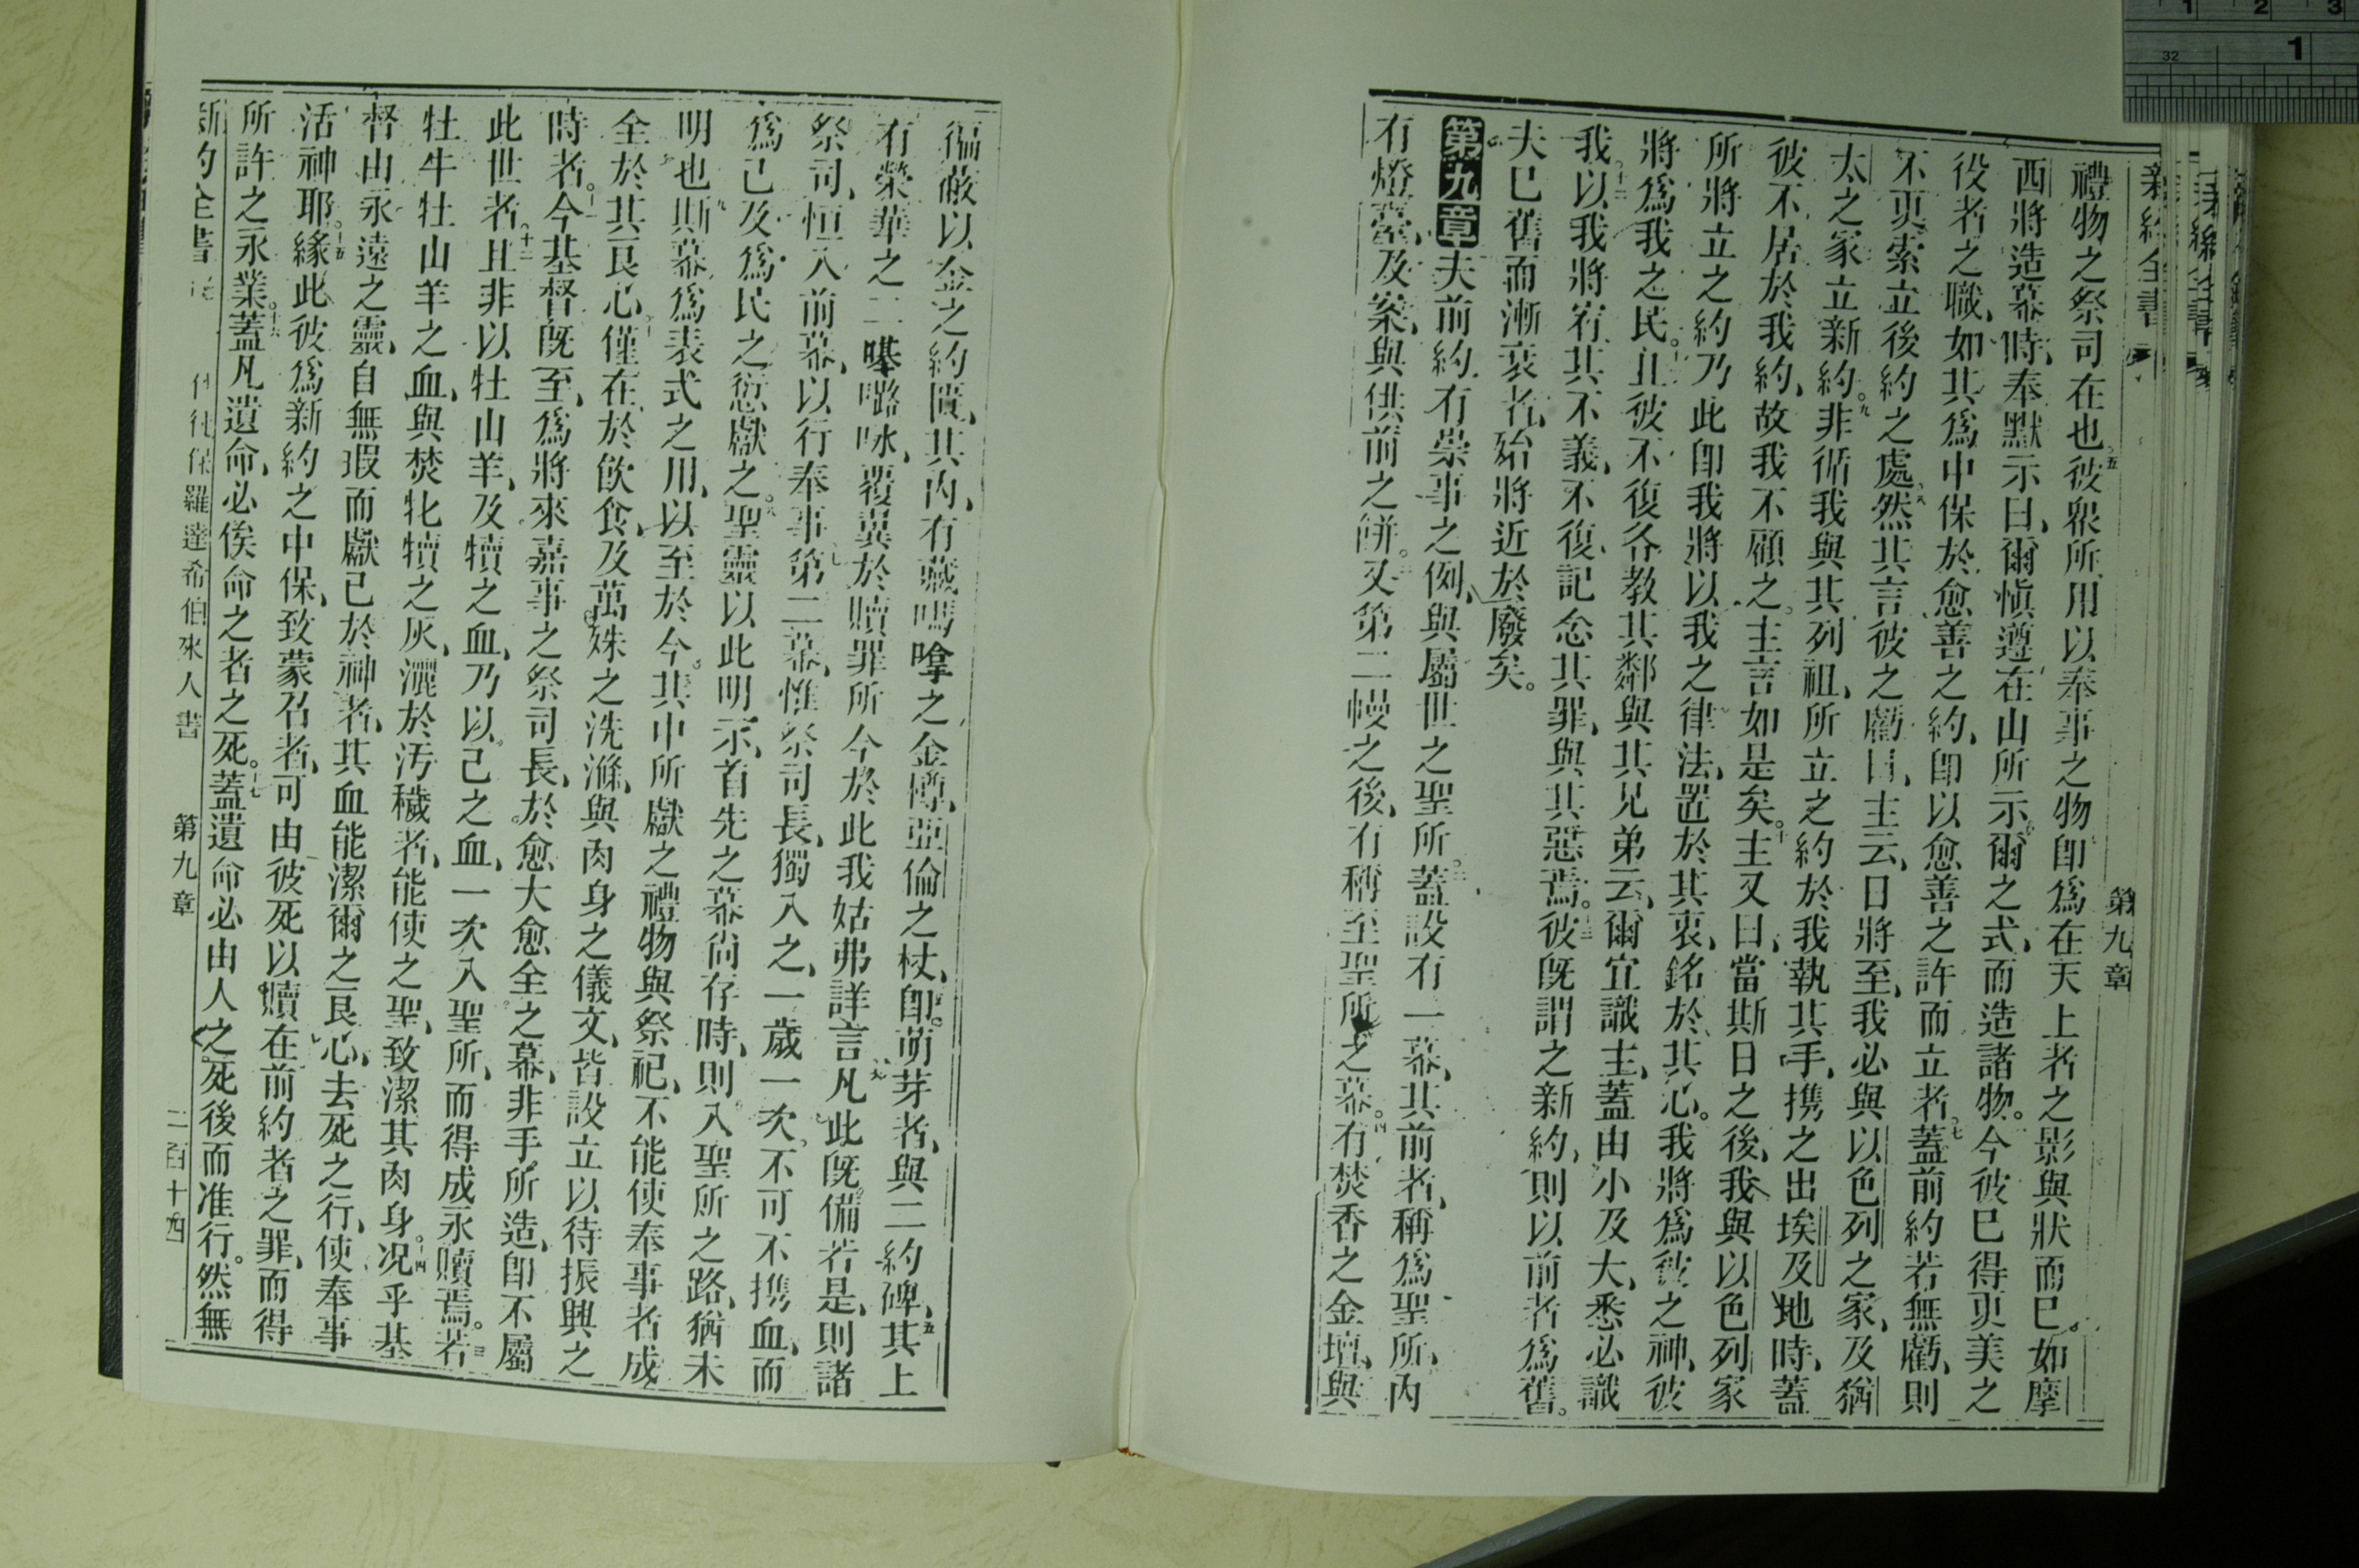 新約全書
第九章
禮物之祭司在也五彼衆所用以奉事之物卽爲在天上者之影與狀而已如摩
西將造幕時奉默示曰爾愼遵在山所示爾之式而造諸物今彼已得更美之
役者之職如其爲中保於愈善之約卽以愈善之許而立者七蓋前約若無虧則
不更索立後約之處八然其言彼之虧曰主云日將至我必與以色列之家及猶
太之家立新約九非循我與其列祖所立之約於我執其手携之出埃及地時蓋
彼不居於我約故我不顧之主言如是矣十主又曰當斯日之後我與以色列家
所將立之約乃此卽我將以我之律法置於其衷銘於其心我將爲彼之神彼
將爲我之民十一且彼不復各教其鄰與其兄弟云爾宜識主蓋由小及大悉必識
我十二以我將宥其不義不復記念其罪與其惡焉十三彼旣謂之新約則以前者爲舊
夫已舊而漸衰者殆將近於廢矣
第九章夫前約有崇事之例與屬世之聖所二蓋設有一幕其前者稱爲聖所內
有燈臺及案與供前之餅三又第二幔之後有稱至聖所之幕四有焚香之金壇與
徧蔽以金之約匱其內有藏嗎嗱之金樽亞倫之杖卽萌芽者與二約碑五其上
有榮華之二𠼻嚧咏覆翼於贖罪所今於此我姑弗詳言凡六此旣備若是則諸
祭司恒入前幕以行奉事七第二幕惟祭司長獨入之一歲一次不可不携血而
爲己及爲民之愆獻之八聖靈以此明示首先之幕尙存時則入聖所之路猶未
明也九斯幕爲表式之用以至於今其中所獻之禮物與祭祀不能使奉事者成
全於其良心十僅在於飮食及萬殊之洗滌與肉身之儀文皆設立以待振興之
時者十一今基督旣至爲將來嘉事之祭司長於愈大愈全之幕非手所造卽不屬
此世者十二且非以牡山羊及犢之血乃以己之血一次入聖所而得成永贖焉十三若
牡牛牡山羊之血與焚牝犢之灰灑於汚穢者能使之聖致潔其肉身十四况乎基
督由永遠之靈自無瑕而獻己於神者其血能潔爾之良心去死之行使奉事
活神耶十五緣此彼爲新約之中保致蒙召者可由彼死以贖在前約者之罪而得
所許之永業十六蓋凡遺命必俟命之者之死十七蓋遺命必由人之死後而准行然無
新約全書
使徒保羅達希伯來人書
第九章
二百十四